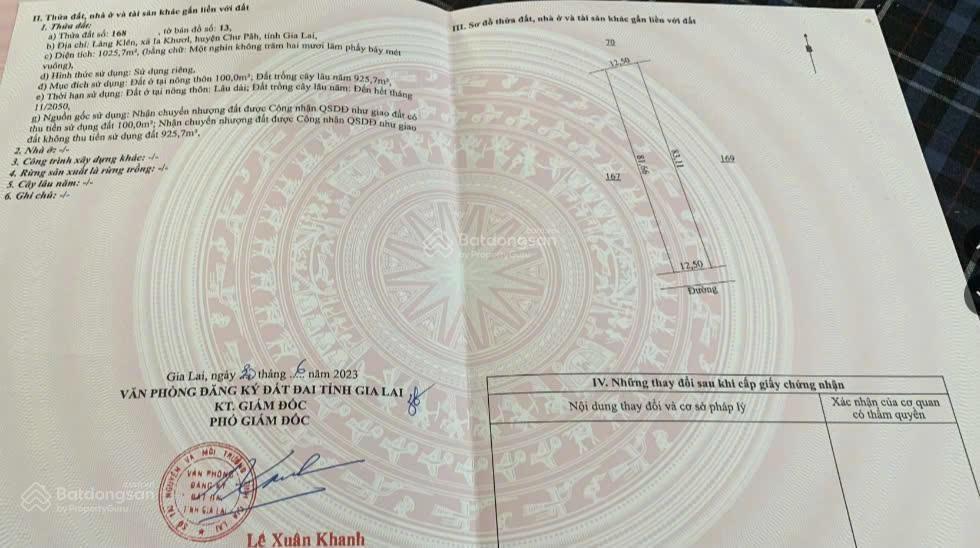 II. Thửa đất, nhà ở và tài sản khác gắn liền với đất
1. Thửa đất:
a) Thửa đất số: 168 , tờ bản đồ số: 13,
b) Địa chỉ: Làng Klên, xã Ia Khươl, huyện Chư Păh, tỉnh Gia Lai,
c) Diện tích: 1025,7m², (bằng chữ: Một nghìn không trăm hai mươi lăm phẩy bảy mét
vuông),
d) Hình thức sử dụng: Sử dụng riêng,
đ) Mục đích sử dụng: Đất ở tại nông thôn 100,0m²; Đất trồng cây lâu năm 925,7m²,
e) Thời hạn sử dụng: Đất ở tại nông thôn: Lâu dài; Đất trồng cây lâu năm: Đến hết tháng
11/2050,
g) Nguồn gốc sử dụng: Nhận chuyển nhượng đất được Công nhận QSDĐ như giao đất có
thu tiền sử dụng đất 100,0m²; Nhận chuyển nhượng đất được Công nhận QSDĐ như giao
đất không thu tiền sử dụng đất 925,7m².
2. Nhà ở: -/-
3. Công trình xây dựng khác: -/-
4. Rừng sản xuất là rừng trồng: -/-
5. Cây lâu năm: -/-
6. Ghi chú: -/-
Gia Lai, ngày 20 tháng 6 năm 2023
VĂN PHÒNG ĐĂNG KÝ ĐẤT ĐAI TỈNH GIA LAI
KT. GIÁM ĐỐC
PHÓ GIÁM ĐỐC
SỞ TÀI NGUYÊN VÀ MÔI TRƯỜNG TỈNH GIA LAI
VĂN PHÒNG
ĐĂNG KÝ
ĐẤT ĐAI
TỈNH GIA LAI
Lê Xuân Khanh
III. Sơ đồ thửa đất, nhà ở và tài sản khác gắn liền với đất
70
12,50
81,66
83,11
167
169
12,50
Đường
IV. Những thay đổi sau khi cấp giấy chứng nhận
Nội dung thay đổi và cơ sở pháp lý
Xác nhận của cơ quan
có thẩm quyền
Batdongsan
by PropertyGuru
Batdongsan
by PropertyGuru